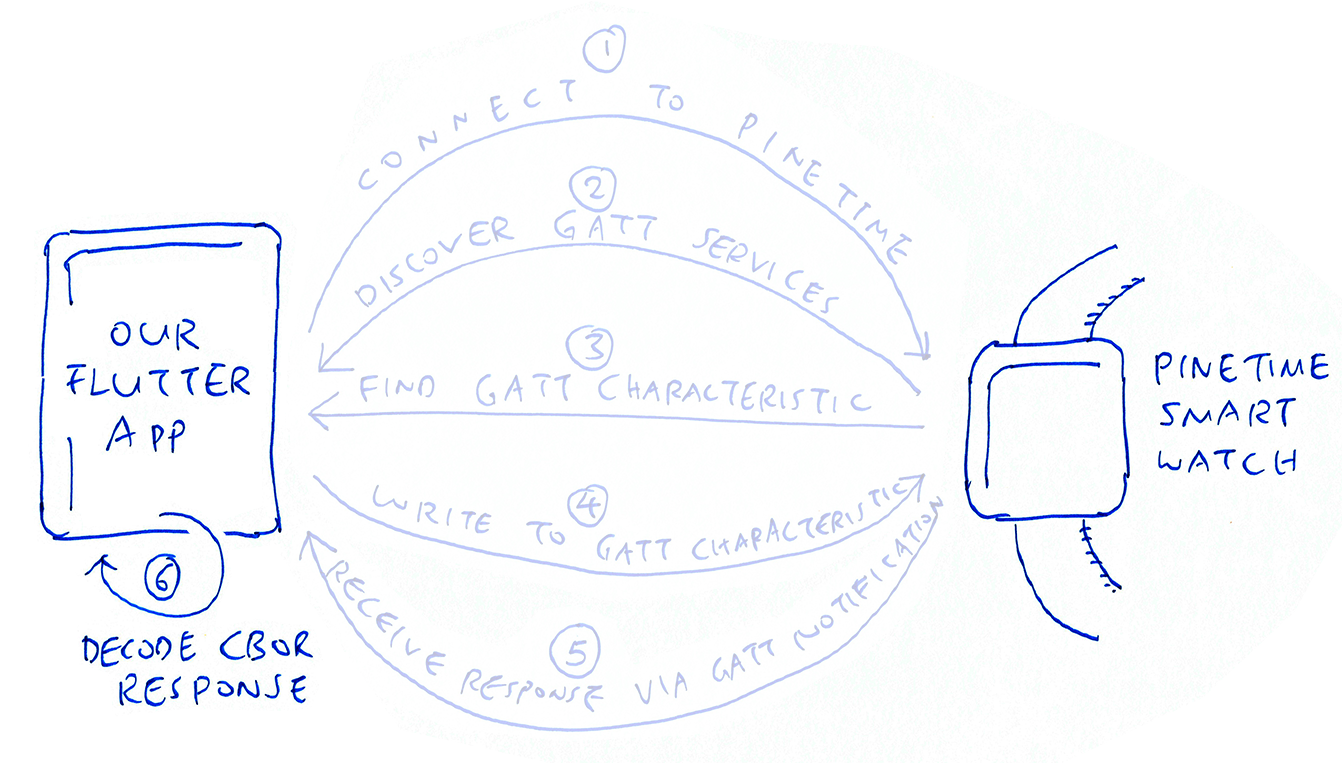 1
CONNECT TO PINETIME
2
DISCOVER GATT SERVICES
3
FIND GATT CHARACTERISTIC
4
WRITE TO GATT CHARACTERISTIC
5
RECEIVE RESPONSE VIA GATT NOTIFICATION
OUR
FLUTTER
APP
6
DECODE CBOR
RESPONSE
PINETIME
SMART
WATCH